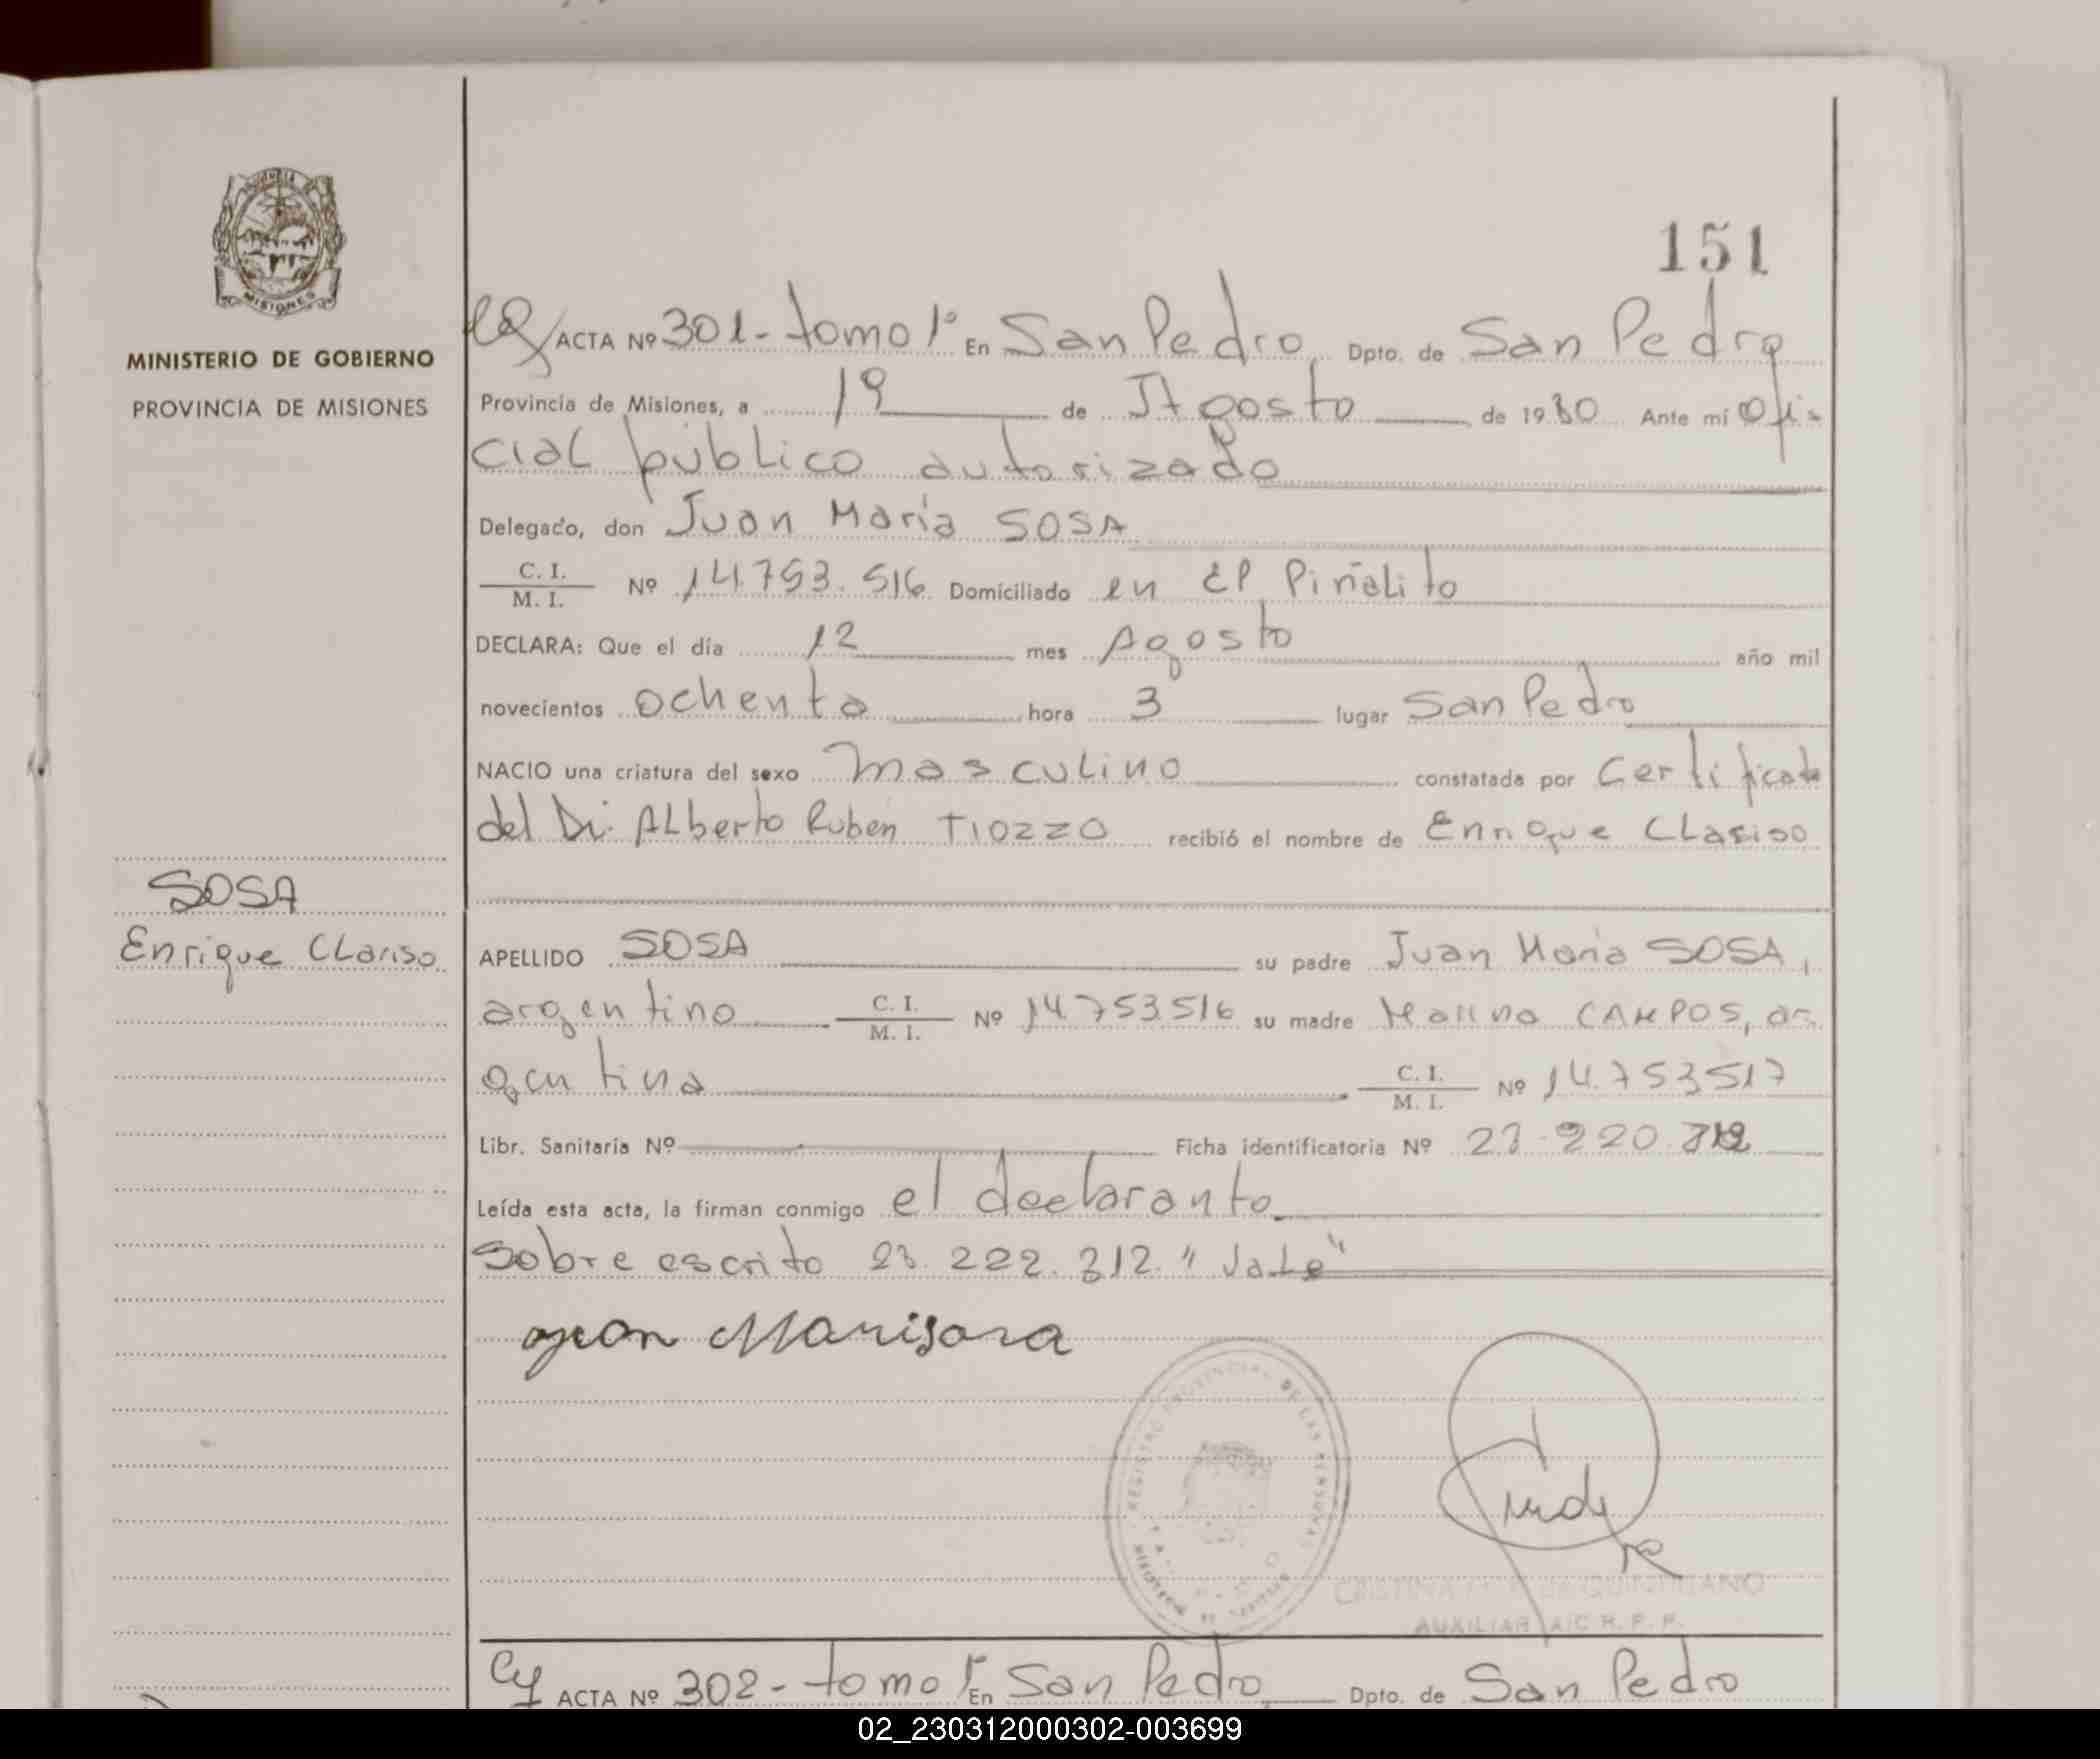 151
MISIONES
MINISTERIO DE GOBIERNO
PROVINCIA DE MISIONES
ACTA Nº 301- tomo 1º En San Pedro Dpto. de San Pedro
Provincia de Misiones, a 19 de Agosto de 1980 Ante mí ofi-
cial público autorizado
Delegado, don Juan María SOSA
C. I.
M. I. Nº 14.753.516 Domiciliado en El Piñalito
DECLARA: Que el día 12 mes Agosto año mil
novecientos ochenta hora 3 lugar San Pedro
NACIO una criatura del sexo masculino constatada por Certificado
del Dr. Alberto Ruben TIOZZO recibió el nombre de Enrique Clariso
SOSA
Enrique Clariso
APELLIDO SOSA su padre Juan María SOSA,
argentino C. I.
M. I. Nº 14.753.516 su madre CAMPOS, ar-
gentina C. I.
M. I. Nº 14.753517
Libr. Sanitaria Nº Ficha identificatoria Nº
Leída esta acta, la firman conmigo el declarante
Sobre escrito 23.222.312. "Vale"
REGISTRO PROVINCIAL DE LAS PERSONAS
MISIONES
CRISTINA de
AUXILIAR A/C R. P. P.
ACTA Nº 302- tomo 1º En San Pedro Dpto. de San Pedro
02_230312000302-003699